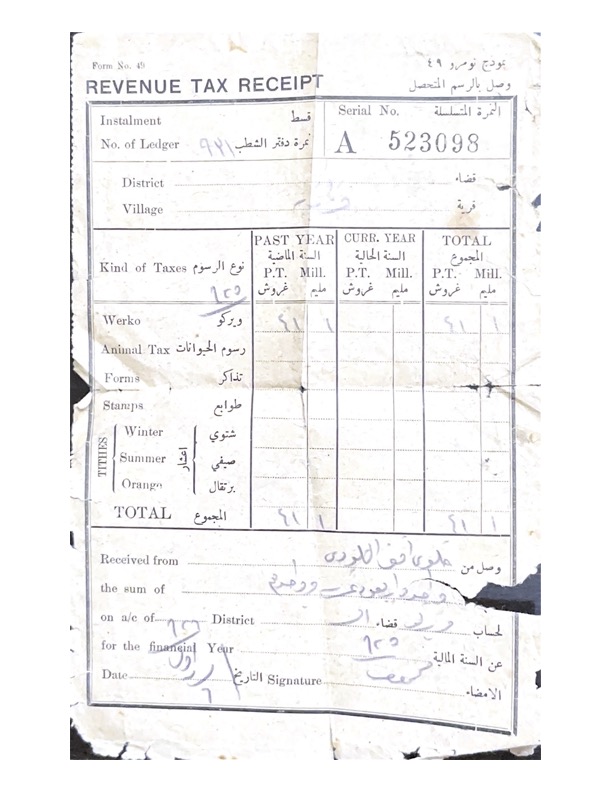 Form No. 49 نموذج نومرو ٤٩
REVENUE TAX RECEIPT وصل بالرسم المتحصل
Instalment قسط
Serial No. النمرة المتسلسلة
No. of Ledger نمرة دفتر الشطب
A 523098
District قضاء
Village قرية
PAST YEAR CURR. YEAR TOTAL
السنة الماضية السنة الحالية المجموع
Kind of Taxes نوع الرسوم P.T. Mill. P.T. Mill. P.T. Mill.
غروش مليم غروش مليم غروش مليم
٩٢٥
Werko ويركو ٤١ ١ ٤١ ١
Animal Tax رسوم الحيوانات
Forms تذاكر
Stamps طوابع
TITHES اعشار
Winter شتوي
Summer صيفي
Orange برتقال
TOTAL المجموع ٤١ ١ ٤١ ١
Received from وصل من
the sum of
on a/c of District قضاء لحساب
for the financial Year ٩٢٥ عن السنة المالية
Date التاريخ Signature الامضاء